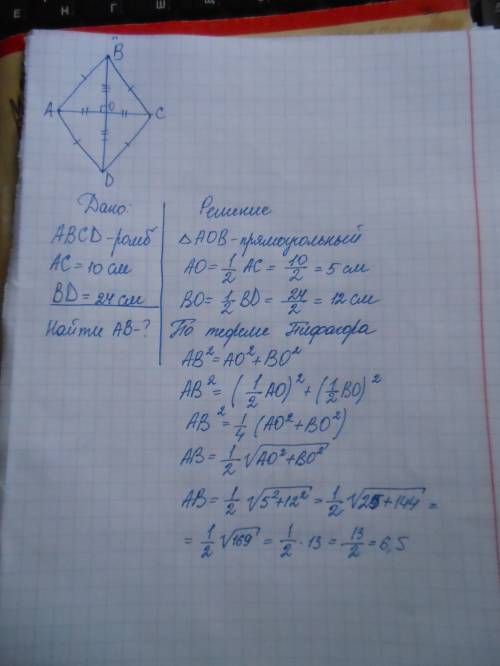 B
A O C
D
Дано:
ABCD - ромб
AC = 10 см
BD = 24 см
Найти AB - ?
Решение
△AOB - прямоугольный
AO = 1/2 AC = 10/2 = 5 см
BO = 1/2 BD = 24/2 = 12 см
По теореме Пифагора
AB² = AO² + BO²
AB² = (1/2 AO)² + (1/2 BO)²
AB² = 1/4 (AO² + BO²)
AB = 1/2 √(AO² + BO²)
AB = 1/2 √(5² + 12²) = 1/2 √(25 + 144) =
= 1/2 √169 = 1/2 · 13 = 13/2 = 6,5